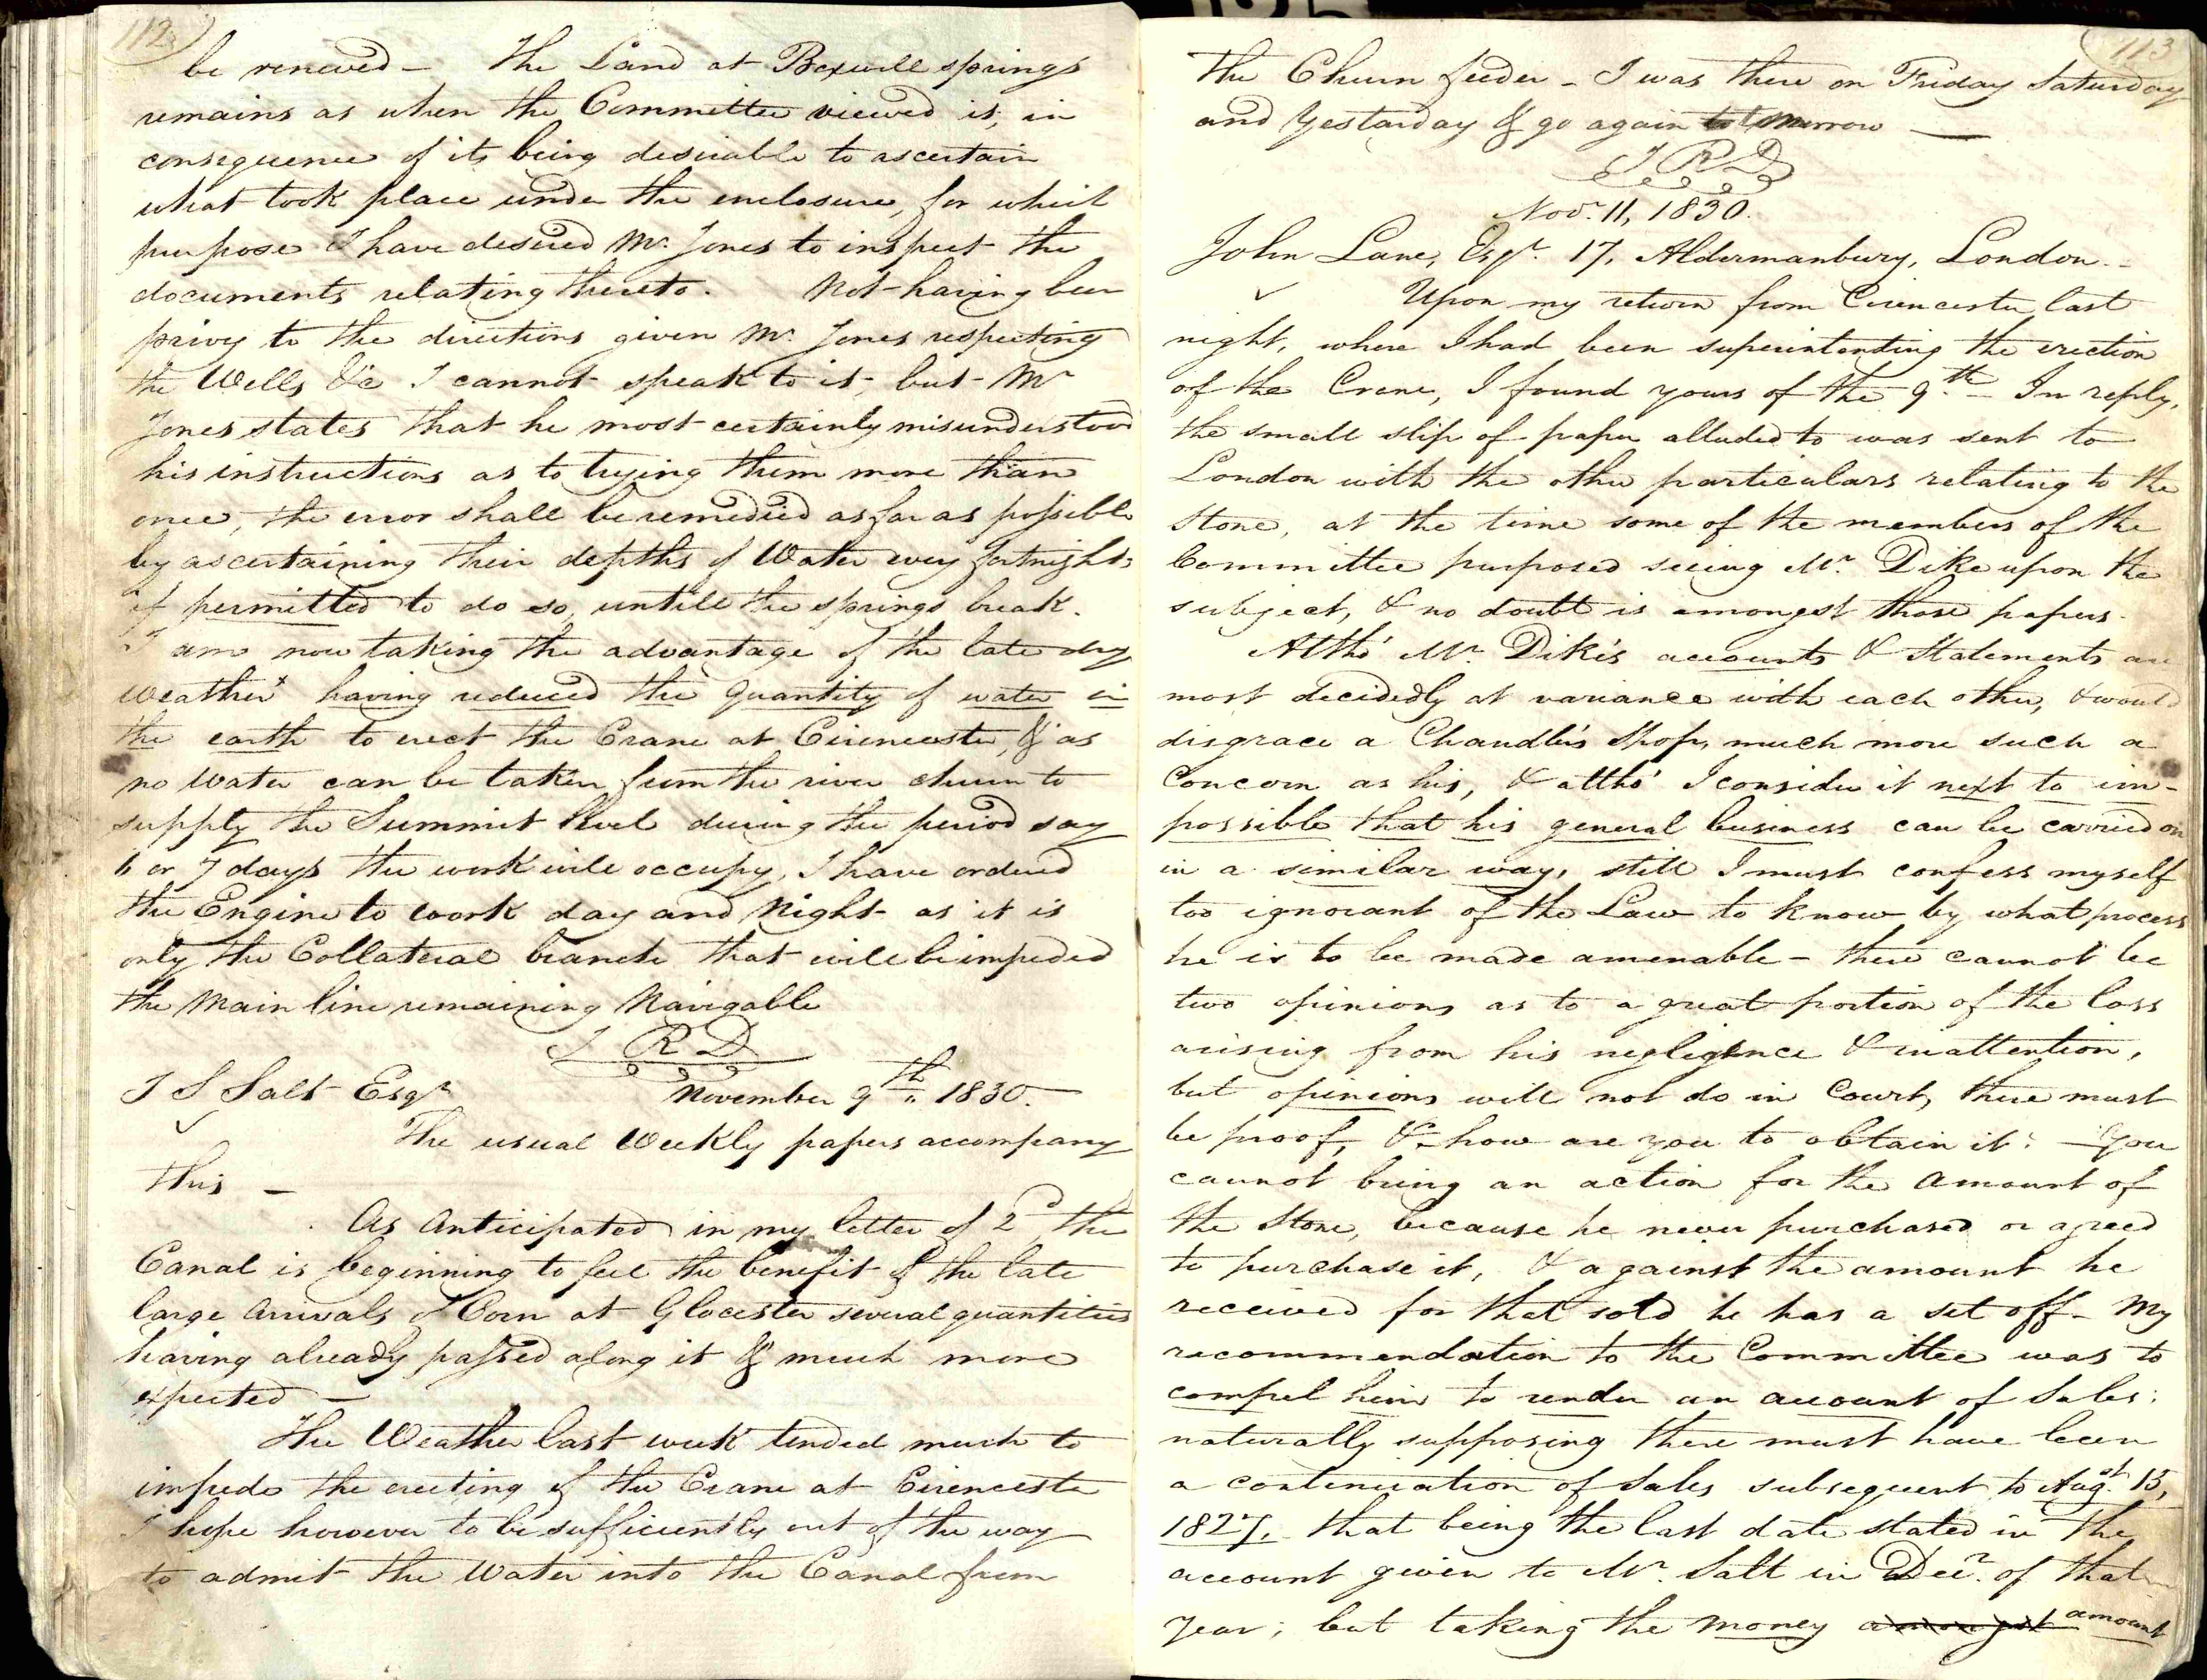 112
be renewed – The Land at Boxwell springs
remains as when the Committee viewed it, in
consequence of its being desirable to ascertain
what took place under the enclosure, for which
purpose I have desired Mr. Jones to inspect the
documents relating thereto. Not having been
privy to the directions given Mr. Jones respecting
the Wells &c I cannot speak to it, but Mr
Jones states that he most certainly misunderstood
his instructions as to trying them more than
once, the error shall be remedied as far as possible
by ascertaining their depths of Water every fortnight
if permitted to do so, untill the springs break.
I am now taking the advantage of the late dry
weather x having reduced the Quantity of water in
the earth to erect the Crane at Cirencester, & as
no Water can be taken from the river churn to
supply the Summit level during the period say
6 or 7 days the work will occupy, I have ordered
the Engine to work day and Night as it is
only the Collateral branch that will be impeded
the Main line remaining Navigable
J R D
J S Salt Esqr November 9th 1830.
The usual Weekly papers accompany
this –
As Anticipated in my letter of 2d, the
Canal is beginning to feel the benefit of the late
large Arrivals of Corn at Glocester several quantities
having already passed along it & much more
expected –
The Weather last week tended much to
impede the erecting of the Crane at Cirencester
I hope however to be sufficiently out of the way
to admit the Water into the Canal from
113
the Churn feeder – I was there on Friday Saturday
and Yestarday & go again tomorrow –
J R D
Novr. 11, 1830.
John Lane, Esqr. 17, Aldermanbury, London. –
Upon my return from Cirencester last
night, where I had been superintending the erection
of the Crane, I found yours of the 9th – In reply,
the small slip of paper alluded to was sent to
London with the other particulars relating to the
Stone, at the time some of the members of the
Committee purposed seeing Mr. Dike upon the
subject, & no doubt is amongst those papers.
Altho' Mr. Dike's accounts & Statements are
most decidedly at variance with each other, & would
disgrace a Chandler's Shop, much more such a
Concern as his, & altho' I consider it next to im-
possible that his general business can be carried on
in a similar way, still I must confess myself
too ignorant of the Law to know by what process
he is to be made amenable – there cannot be
two opinions as to a great portion of the loss
arising from his negligence & inattention,
but opinions will not do in Court, there must
be proof, & how are you to obtain it? – You
cannot bring an action for the amount of
the Stone, because he never purchased or agreed
to purchase it, & against the amount he
received for that sold he has a set off – My
recommendation to the Committee was to
compel him to render an account of Sales;
naturally supposing there must have been
a continuation of Sales subsequent to Augst. 15,
1827, that being the last date stated in the
account given to Mr. Salt in Decr. of that
year; but taking the money amongst amount